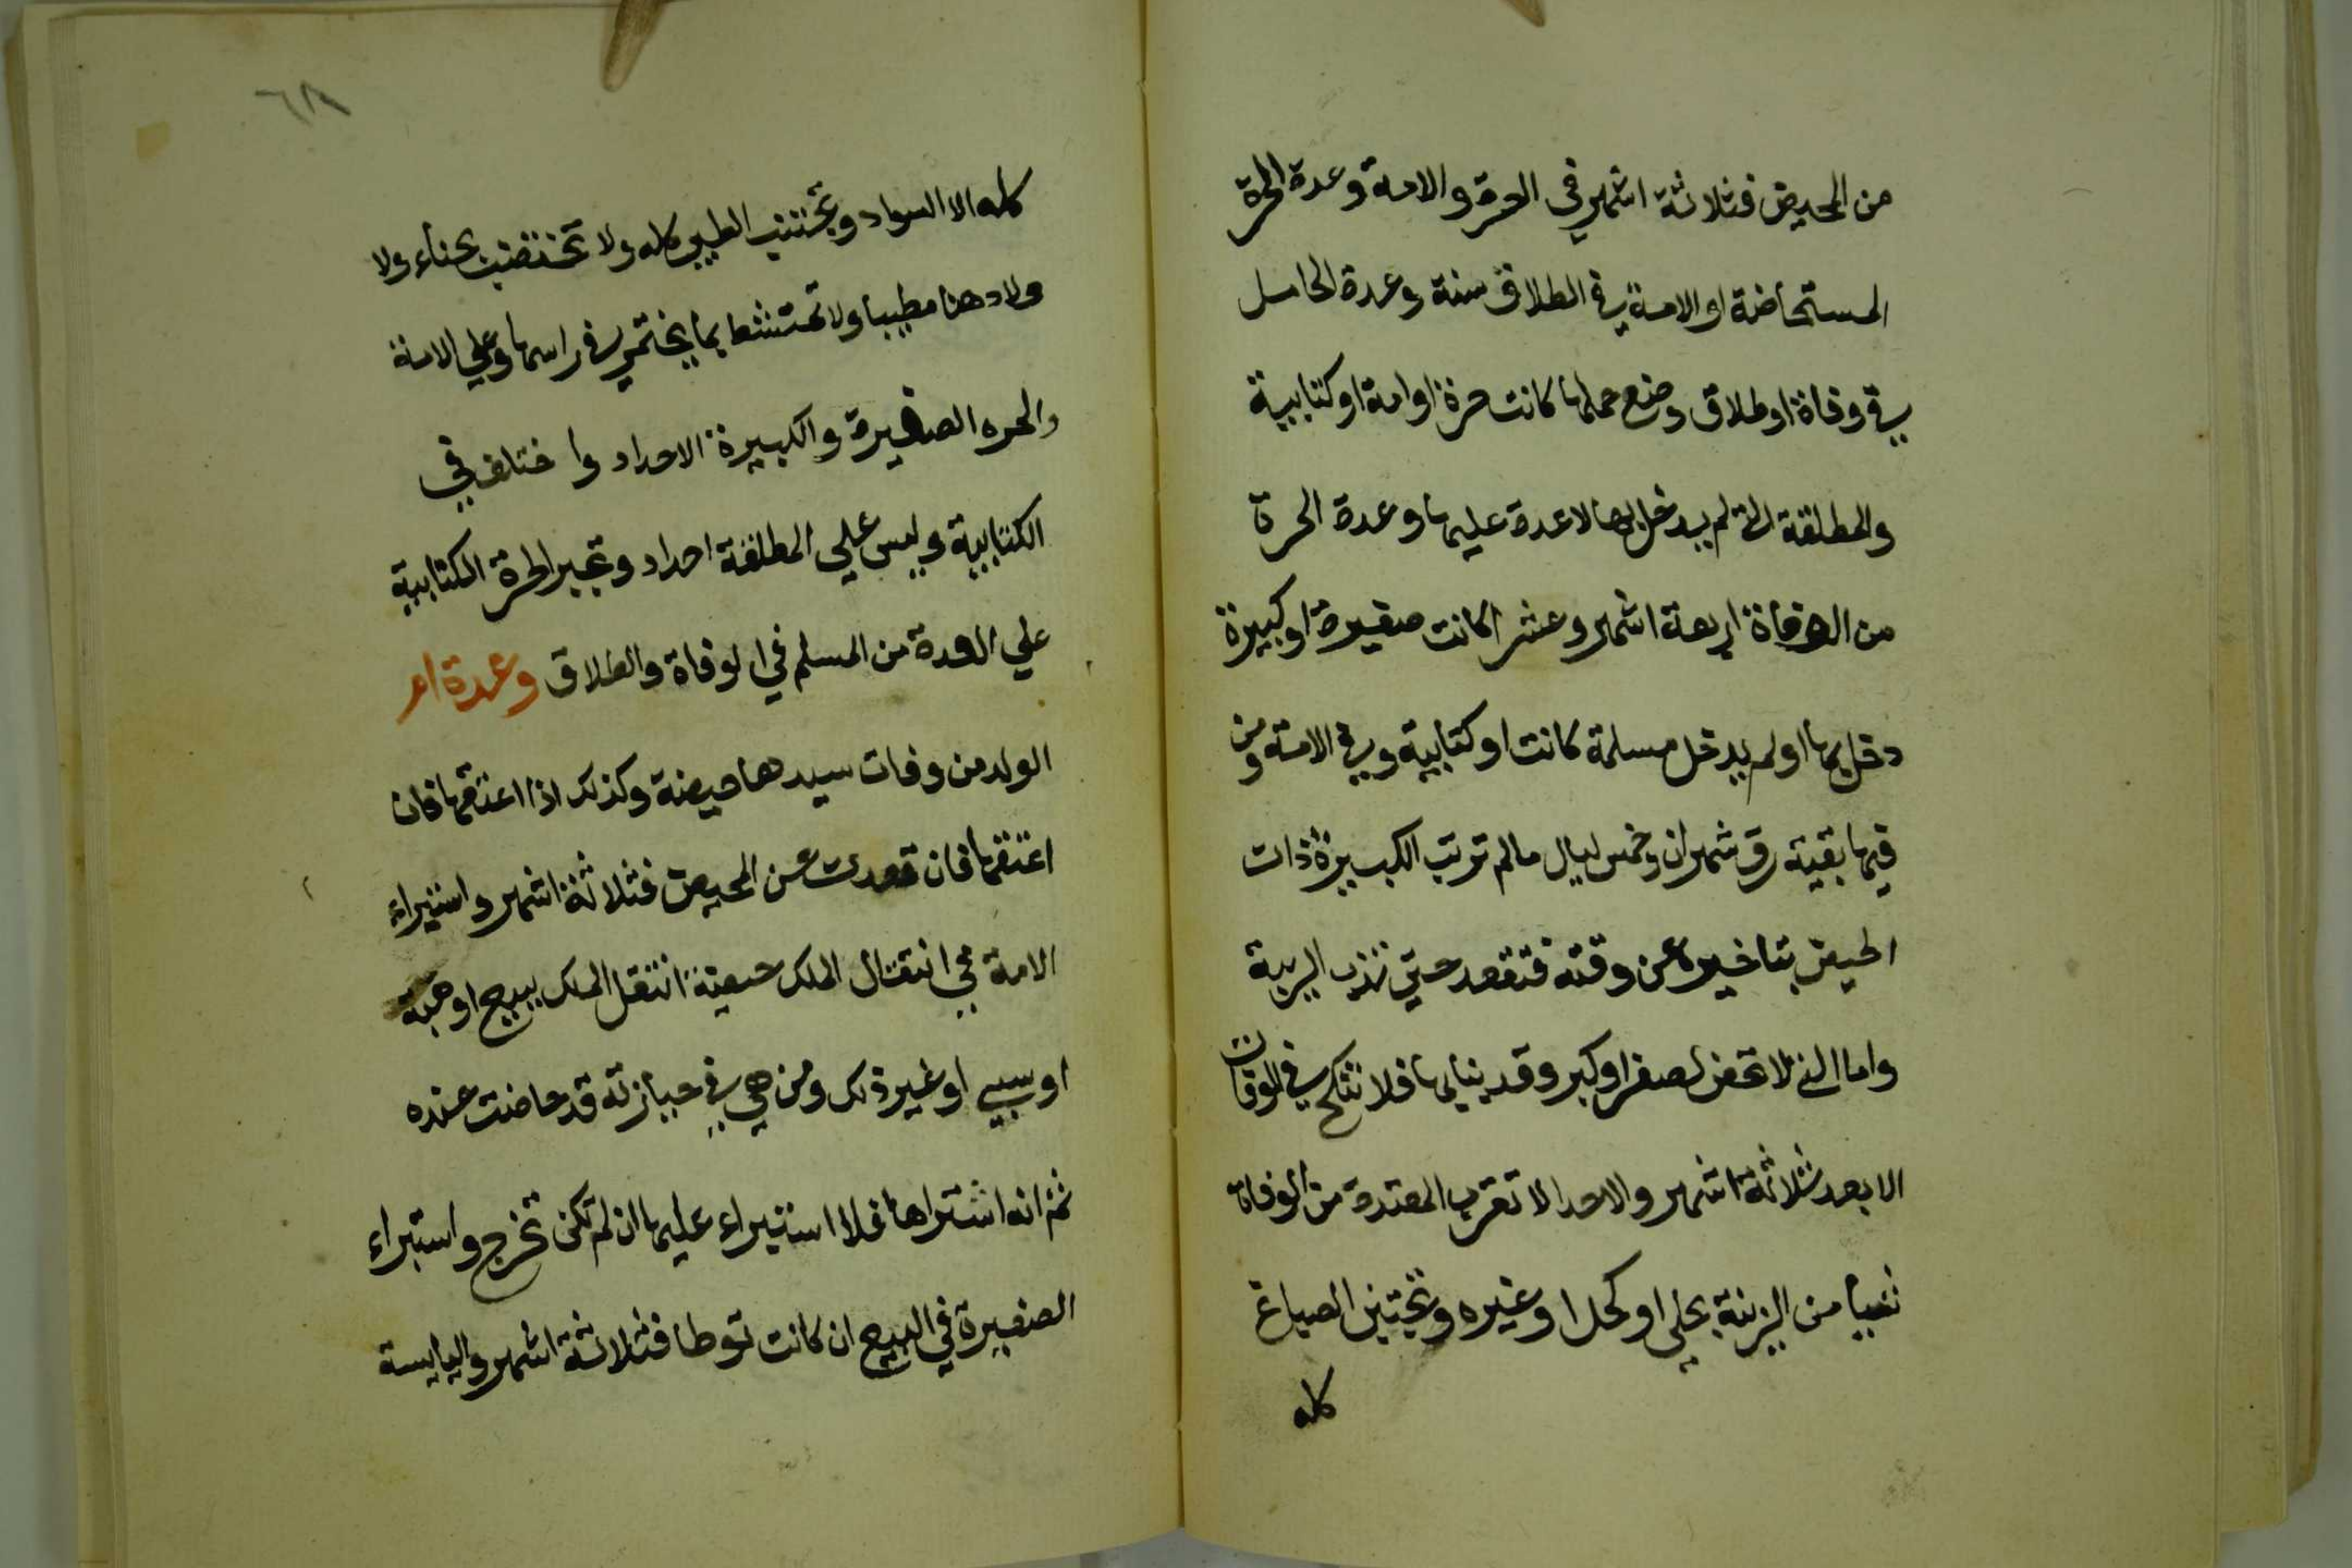 من المحيض فثلاثة اشهر في الحرة والامة وعدة الحرة
المستحاضة او الامة في الطلاق سنة وعدة الحامل
في وفاة او طلاق وضع حملها كانت حرة او امة او كتابية
والمطلقة التي لم يدخل بها لا عدة عليها وعدة الحرة
من الوفاة اربعة اشهر وعشرا كانت صغيرة او كبيرة
دخل بها او لم يدخل مسلمة كانت او كتابية وفي الامة ومن
فيها بقية رق شهران وخمس ليال مالم ترتب الكبيرة ذات
الحيض بتاخيره عن وقته فتقعد حتي تذهب الريبة
واما التي لا تحض لصغر او كبر وقد بني بها فلا تنكح في الوفات
الا بعد ثلاثة اشهر والاحد الا تقرب المعتدة من الوفاة
شيأ من الزينة بحلي او كحل او غيره وتجتنب الصباغ
كله
٦٨
كله الا السواد وتجتنب الطيب كله ولا تختضب بحناء ولا
ولا دهنا مطيبا ولا تمتشط بما يختمر في راسها وعلي الامة
والحره الصغيرة والكبيرة الاحداد واختلف في
الكتابية وليس علي المطلقة احداد وتجبر الحرة الكتابية
علي العدة من المسلم في الوفاة والطلاق وعدة ام
الولد من وفات سيدها حيضة وكذلك اذا اعتقها فان
اعتقها فان قعدت عن المحيض فثلاثة اشهر واستبراء
الامة في انتقال الملك حيضة انتقل الملك ببيع او هبة
او سبي او غير ذلك ومن هي في حيازته قد حاضت عنده
ثم انه اشتراها فلا استبراء عليها ان لم تكن تخرج واستبراء
الصغيرة في البيع ان كانت توطا فثلاثة اشهر واليايسة